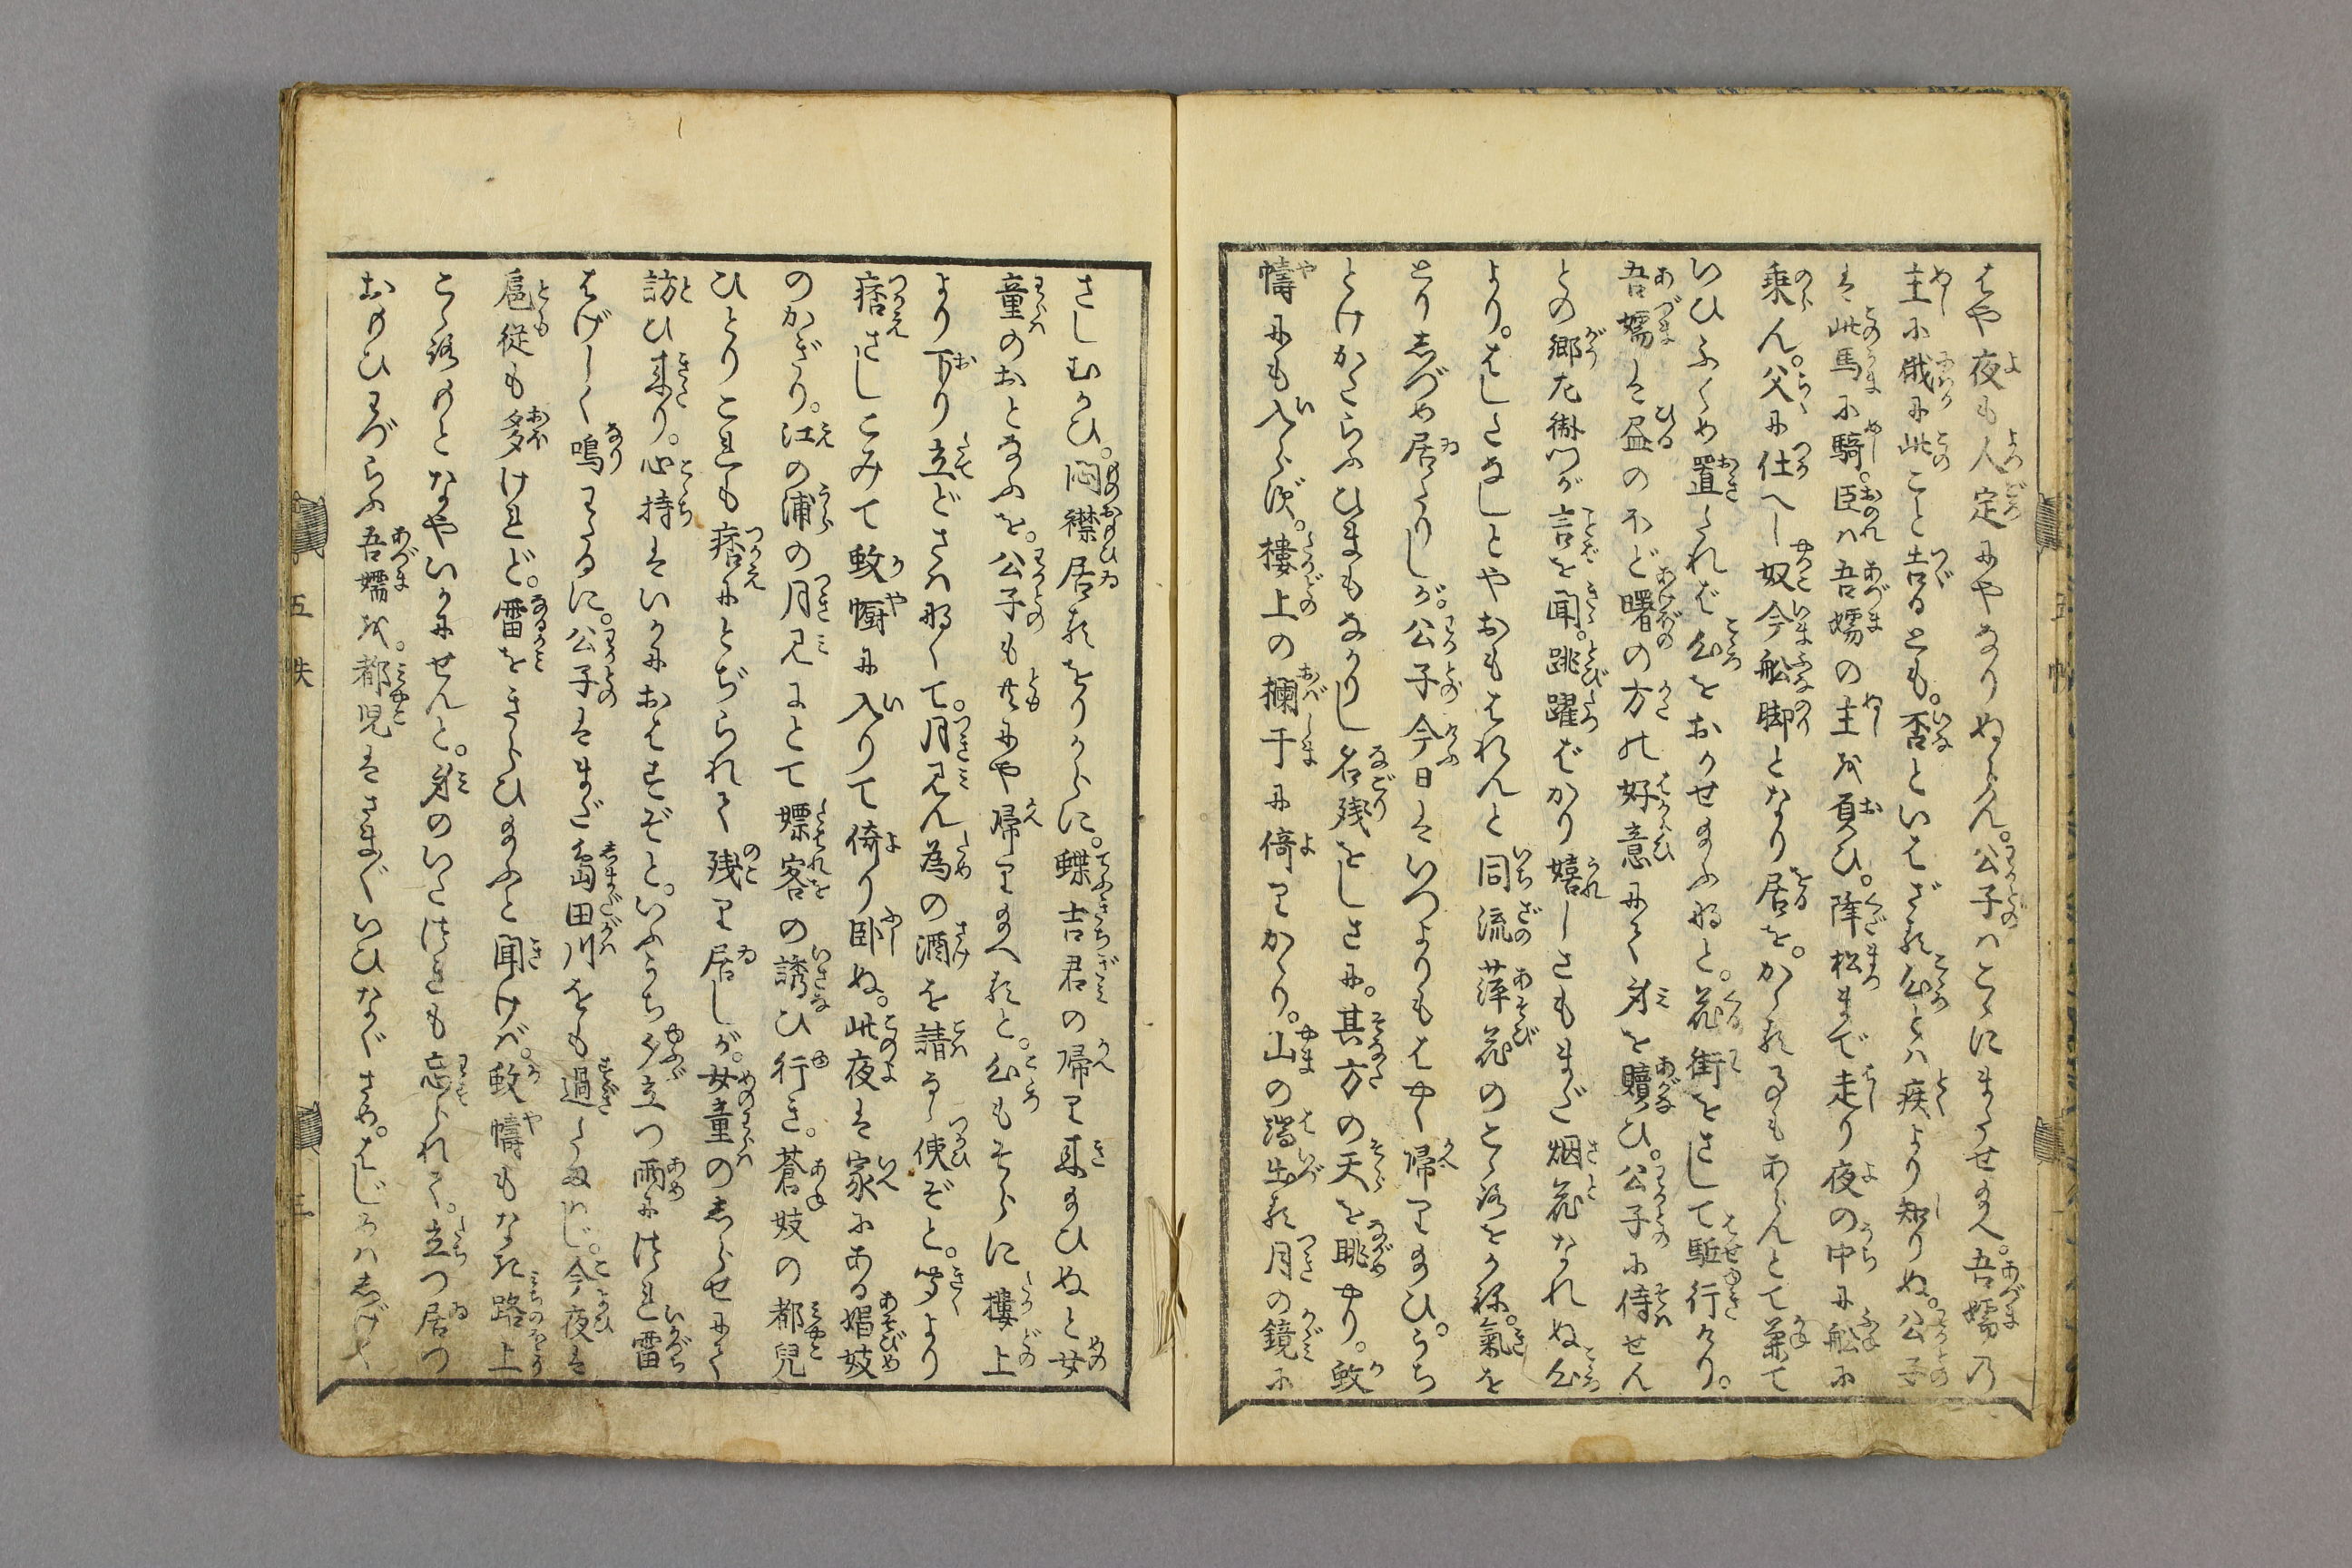 はや夜も人定にやなりぬらん。公子はこゝにまたせ給へ。吾嬬乃
主に俄に此こと告るとも。否といはざる心とは疾より知りぬ。公子
は此馬に騎。臣は吾嬬の主を負ひ。降松まで走り夜の中に舩に
乗ん。父に仕へし奴今舩脚となり居を。かゝる事もあらんとて兼て
いひふくめ置たれば心をおかせ給ふなと。花街をさして駈行けり。
吾嬬は昼のほど曙の方の好意にて身を贖ひ。公子に侍せん
との郷左衛門が言を聞。跳躍ばかり嬉しさもまだ烟花なれぬ心
より。はしたなしとやおもはれんと同流萍花のこゝろをかね。氣を
とりしづめ居たりしが。公子今日はいつよりもはやく帰り給ひ。うち
とけかたらふひまもなかりし名残をしさに。其方の天を眺やり。蚊
幬にも入らず。樓上の欄干に倚りかゝり。山の端出る月の鏡に
さしむかひ。悶襟居るをりからに。蝶吉君の帰り来給ひぬと女
童のおとなふを。公子も共にや帰り給へると。心もそらに樓上
より下り立どさはなくて。月見ん為の酒を請る使ぞと。聞より
痞さしこみて蚊幮に入りて倚り卧ぬ。此夜は家にある娼妓
のかぎり。江の浦の月見にとて嫖客の誘ひ行き。蒼妓の都兒
ひとりこれも痞にとぢられて残り居しが。女童のしらせにて
訪ひ来り。心持はいかにおはすぞと。いふうち夕立つ雨につれ雷
はげしく鳴わたるに。公子はまだ島田川をも過たまはじ。今夜は
扈従も多けれど。雷をきらひ給ふと聞けば。蚊幬もなき路上
こゝろのとなやいかにせんと。身のいたつきも忘られて。立つ居つ
おもひわづらふ吾嬬を。都児はさま〴〵いひなぐさめ。はじめはしげく
五帙
三